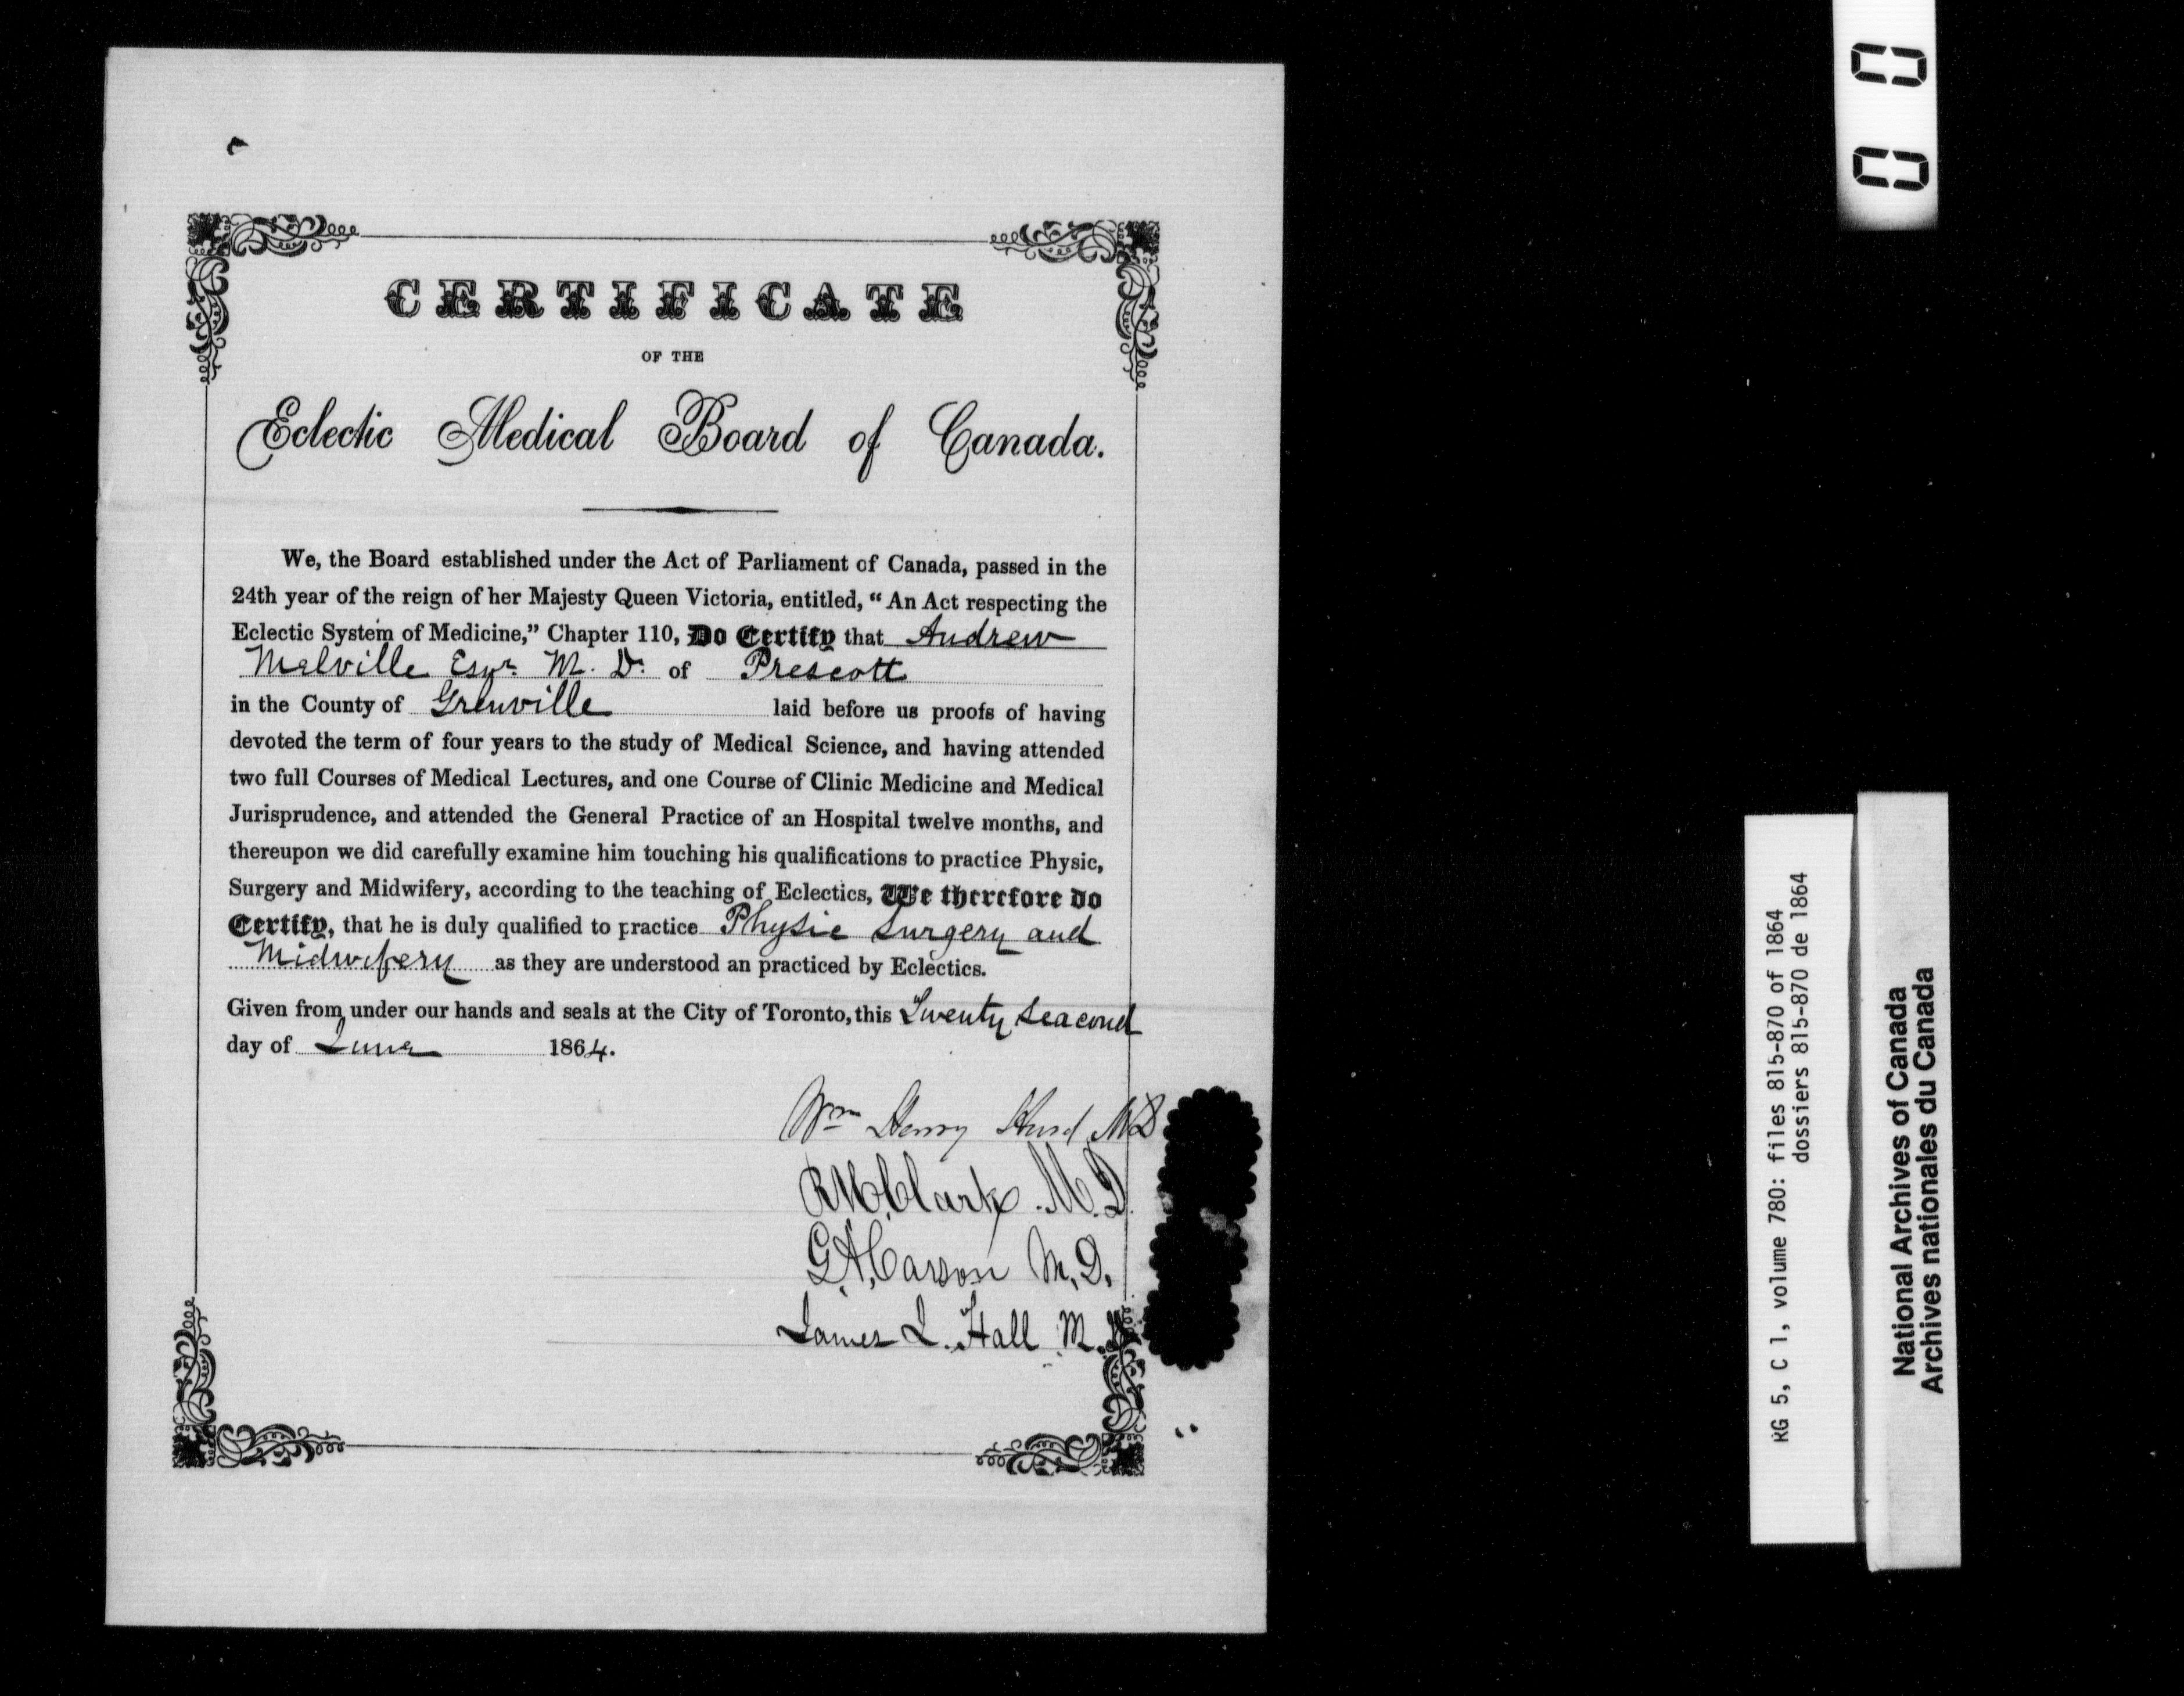 CERTIFICATE
OF THE
Eclectic Medical Board of Canada.
We, the Board established under the Act of Parliament of Canada, passed in the
24th year of the reign of her Majesty Queen Victoria, entitled, “An Act respecting the
Eclectic System of Medicine,” Chapter 110, Do Certify that Andrew
Melville Esqr. M. D. of Prescott
in the County of Grenville laid before us proofs of having
devoted the term of four years to the study of Medical Science, and having attended
two full Courses of Medical Lectures, and one Course of Clinic Medicine and Medical
Jurisprudence, and attended the General Practice of an Hospital twelve months, and
thereupon we did carefully examine him touching his qualifications to practice Physic,
Surgery and Midwifery, according to the teaching of Eclectics, We therefore do
Certify, that he is duly qualified to practice Physic Surgery and
Midwifery as they are understood an practiced by Eclectics.
Given from under our hands and seals at the City of Toronto, this Twenty Seacond
day of June 1864.
Wm Henry Hurd MD
R H Clark. M.D.
G. A. Carson M.D.
James L. Hall M.D
RG 5, C 1, volume 780: files 815-870 of 1864
dossiers 815-870 de 1864
National Archives of Canada
Archives nationales du Canada